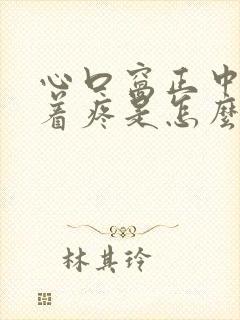 心口窩正中
着疼是怎麼
林其玲